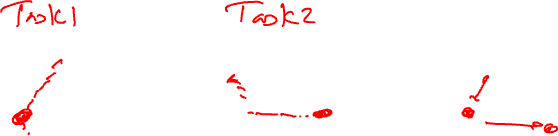 Task1
Task2